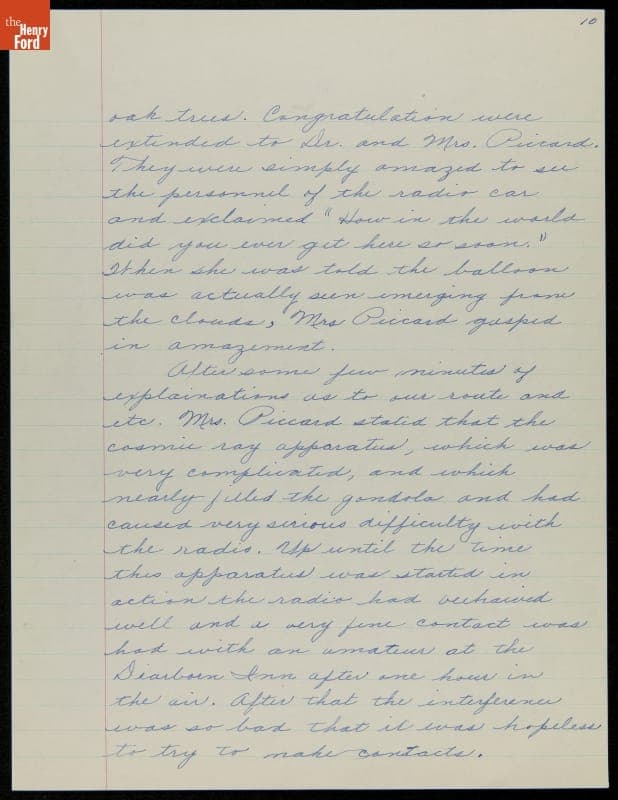 the
Henry
Ford
10
oak trees. Congratulation were
extended to Dr. and Mrs. Piccard.
They were simply amazed to see
the personnel of the radio car
and exclaimed "How in the world
did you ever get here so soon."
When she was told the balloon
was actually seen emerging from
the clouds, Mrs Piccard gasped
in amazement.
After some few minutes of
explainations as to our route and
etc. Mrs. Piccard stated that the
cosmic ray apparatus, which was
very complicated, and which
nearly filled the gondola and had
caused very serious difficulty with
the radio. Up until the time
this apparatus was started in
action the radio had beehaived
well and a very fine contact was
had with an amateur at the
Dearborn Inn after one hour in
the air. After that the interference
was so bad that it was hopeless
to try to make contacts.